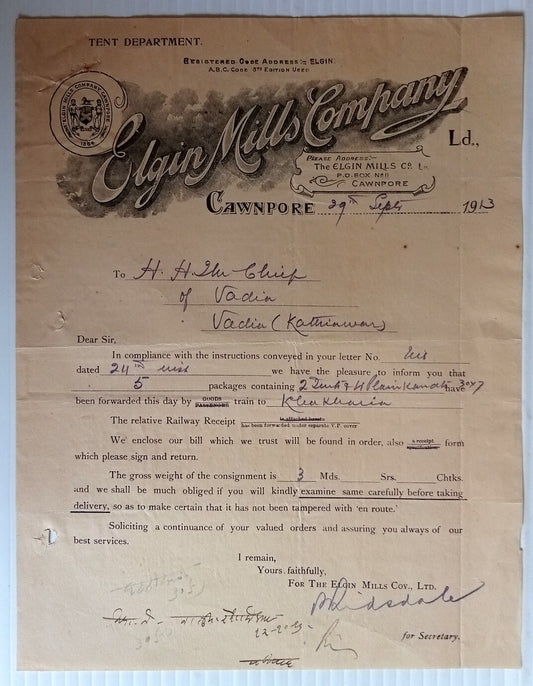 TENT DEPARTMENT.
REGISTERED CODE ADDRESS:- ELGIN.
A.B.C. CODE 5TH EDITION USED
ELGIN MILLS COMPANY CAWNPORE
1864
Elgin Mills Company
Ld.,
PLEASE ADDRESS:-
THE ELGIN MILLS CO. Ld
P.O. BOX No 11
CAWNPORE
CAWNPORE 29th Sept 1913
To H. H. The Chief
of Vadia
Vadia (Kathiawar)
Dear Sir,
In compliance with the instructions conveyed in your letter No.
dated 24th inst we have the pleasure to inform you that
5 packages containing 2 Tents & 4 Plain Kanats 30x7 have
been forwarded this day by GOODS PASSENGER train to
The relative Railway Receipt is attached hereto
has been forwarded under separate V.P. cover
We enclose our bill which we trust will be found in order, also a receipt form
which please sign and return.
The gross weight of the consignment is 3 Mds. Srs. Chtks.
and we shall be much obliged if you will kindly examine same carefully before taking
delivery, so as to make certain that it has not been tampered with 'en route.'
Soliciting a continuance of your valued orders and assuring you always of our
best services.
I remain,
Yours faithfully,
FOR THE ELGIN MILLS COY., LTD.
for Secretary.